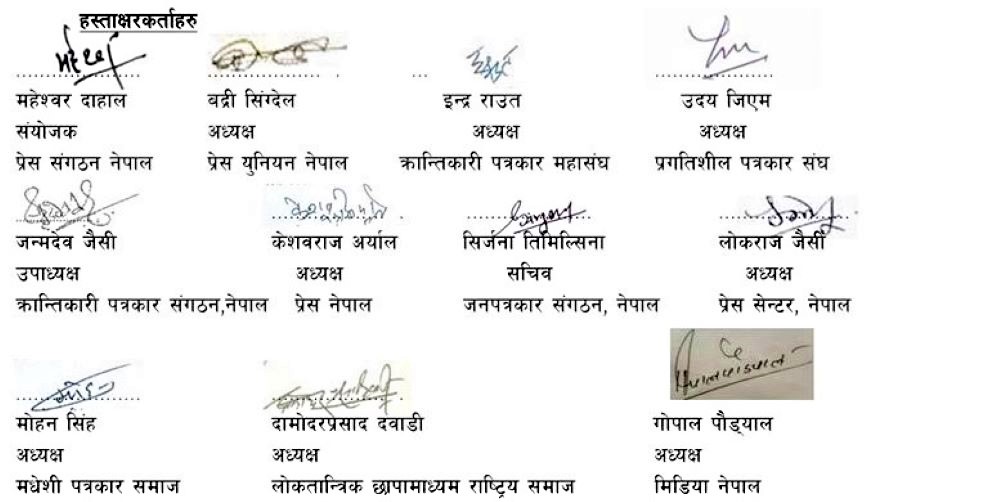 हस्ताक्षरकर्ताहरु
महेश्वर दाहाल बद्री सिंग्देल इन्द्र राउत उदय जिएम
संयोजक अध्यक्ष अध्यक्ष अध्यक्ष
प्रेस संगठन नेपाल प्रेस युनियन नेपाल क्रान्तिकारी पत्रकार महासंघ प्रगतिशील पत्रकार संघ
जन्मदेव जैसी केशवराज अर्याल सिर्जना तिमिल्सिना लोकराज जैसी
उपाध्यक्ष अध्यक्ष सचिव अध्यक्ष
क्रान्तिकारी पत्रकार संगठन,नेपाल प्रेस नेपाल जनपत्रकार संगठन, नेपाल प्रेस सेन्टर, नेपाल
मोहन सिंह दामोदरप्रसाद दवाडी गोपाल पौड्याल
अध्यक्ष अध्यक्ष अध्यक्ष
मधेशी पत्रकार समाज लोकतान्त्रिक छापामाध्यम राष्ट्रिय समाज मिडिया नेपाल